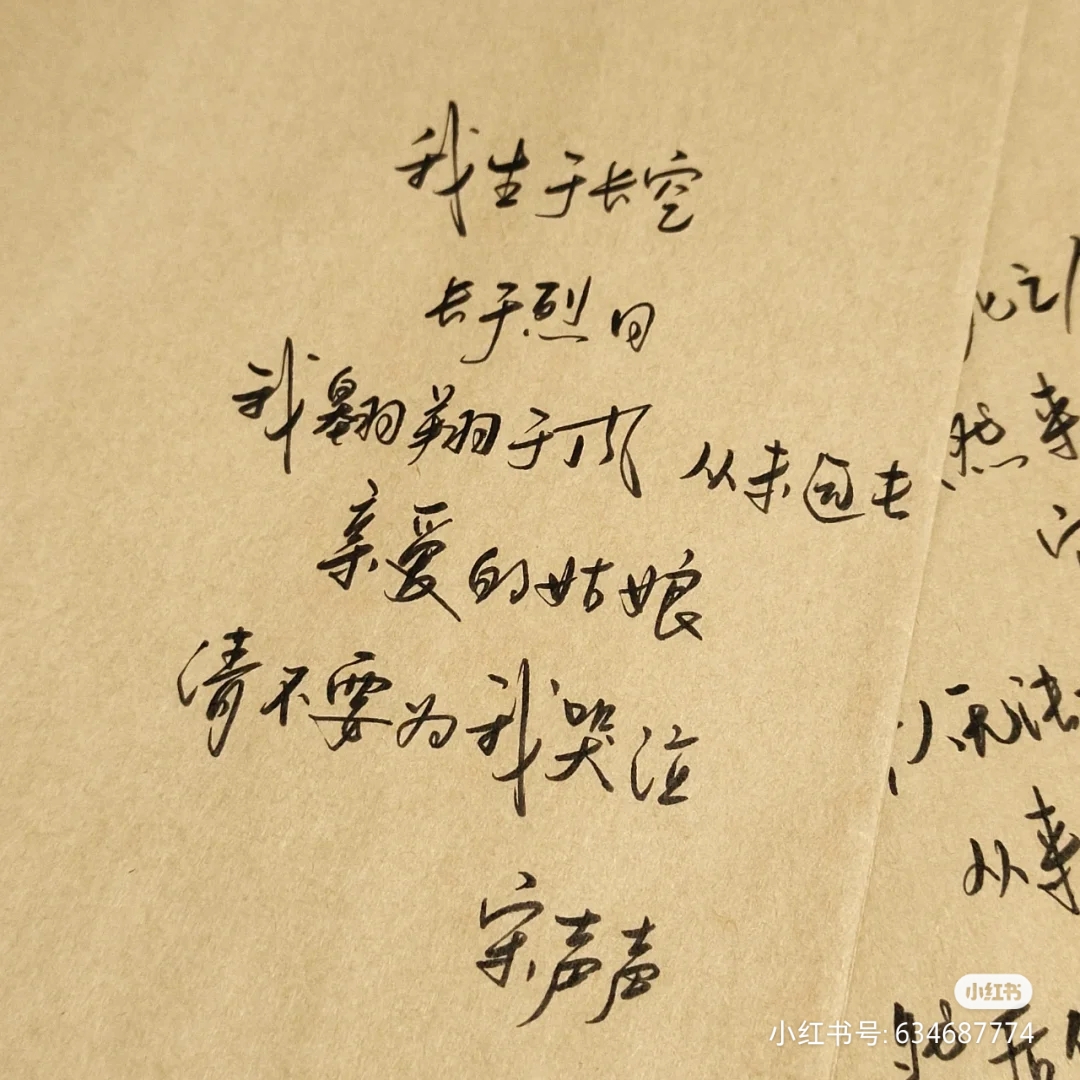 我生于长空
长于烈日
我翱翔于风 从未远去
亲爱的姑娘
请不要为我哭泣
宋声声
然来
无法
从来
小红书
小红书号: 634687774